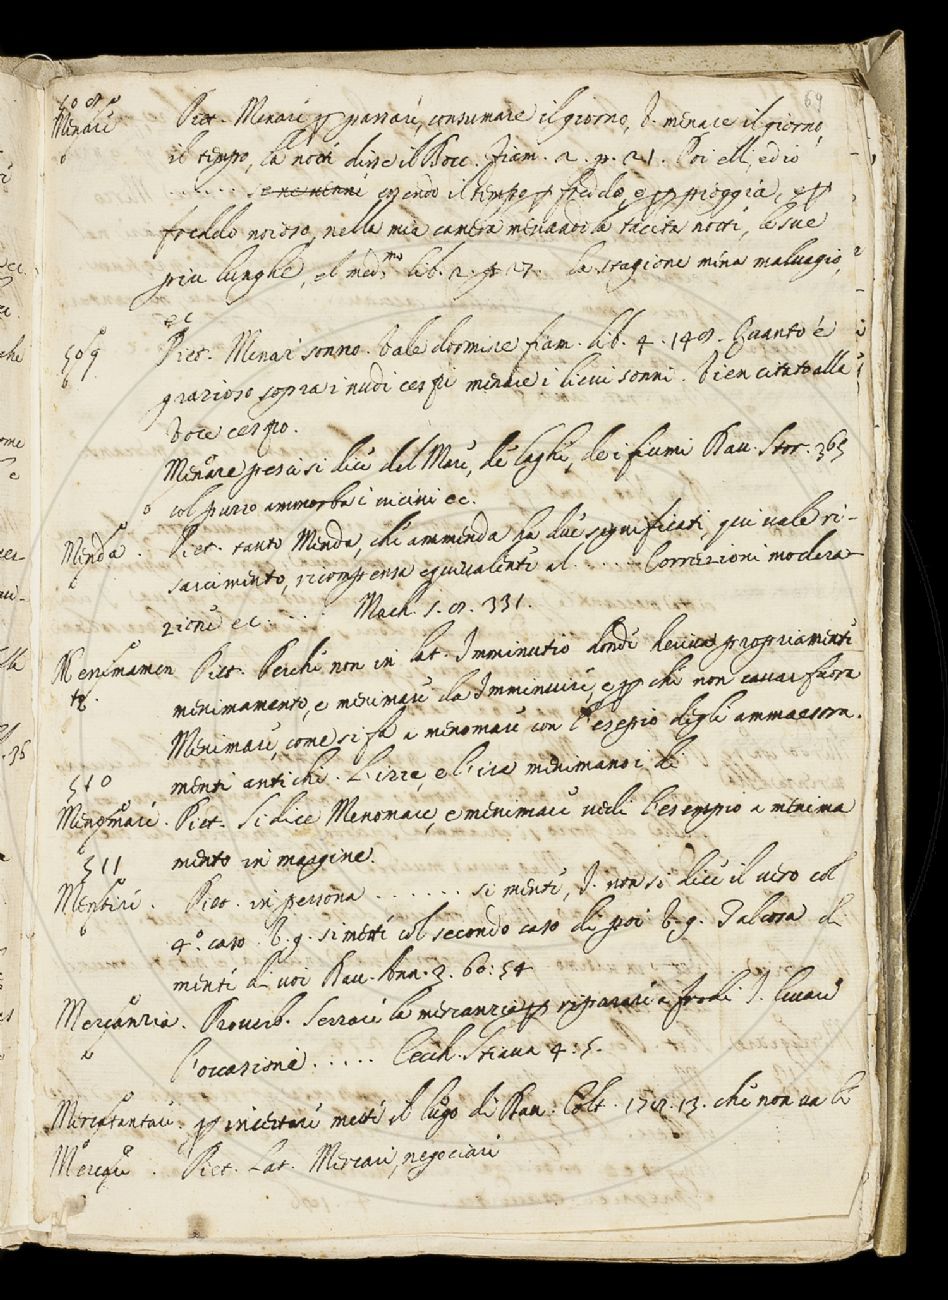 69
508
Menare Piet. Menare p passare, consumare il giorno, V. menare il giorno,
il tempo, la notte disse il Bocc. fiam. 2. p. 21. Poi ell, ed io
. . . . . . essendo il tempo p freddo, e p pioggia, e p
freddo noioso, nella mia camera menando la tacita notte, le sue
piu lunghe, el med.mo lib. 2. p. 27. la stagione mena malvagio,
ec
509 Piet. Menar sonno. Vale dormire fiam. lib. 4. 148. Quanto è
grazioso sopra i nudi cespi menare i lievi sonni. Vien citato alla
voce cespo.
Menare pesci si dice del Mare, de laghi, dei fiumi Dav. Stor. 365
col puzzo ammorba i vicini ec.
Menda . Piet. tanto Menda, che ammenda ha due significati, qui vale ri-
sarcimento, ricompensa equivalente al . . . . . Correzioni modera
zione ec. . . . Mach. 1. 8. 331.
Menimamen Piet. Perche non in lat. Imminutio donde deriva propriamente
to. menimamento, e menimare da Imminuire, e p che non cavar fuora
Menimare, come si fa a menomare con l'esepio degli ammaestra.
510 menti antichi. L'erre, e l'ira menimano i dì
Menomare . Piet. Si dice Menomare, e menimare vedi l'esempio a menima
511 mento in margine.
Mentire . Piet. in persona . . . . . . si mente, V. non si dice il vero col
4.º caso. V. g. si mente col secondo caso di poi V. g. Talvora di
menti di voi Dav. Ann. 3. 60. 54
Mercanzia . Proverb. Serrare la mercanzia p riparare a frodi V. levare
l'occasione . . . . . Cecch. Stiava 4. 5.
Mercatantare p incettare metti il lugo di Dav. Colt. 178. 13. che non va lì
Mercare . Piet. Lat. Mercari, negociari